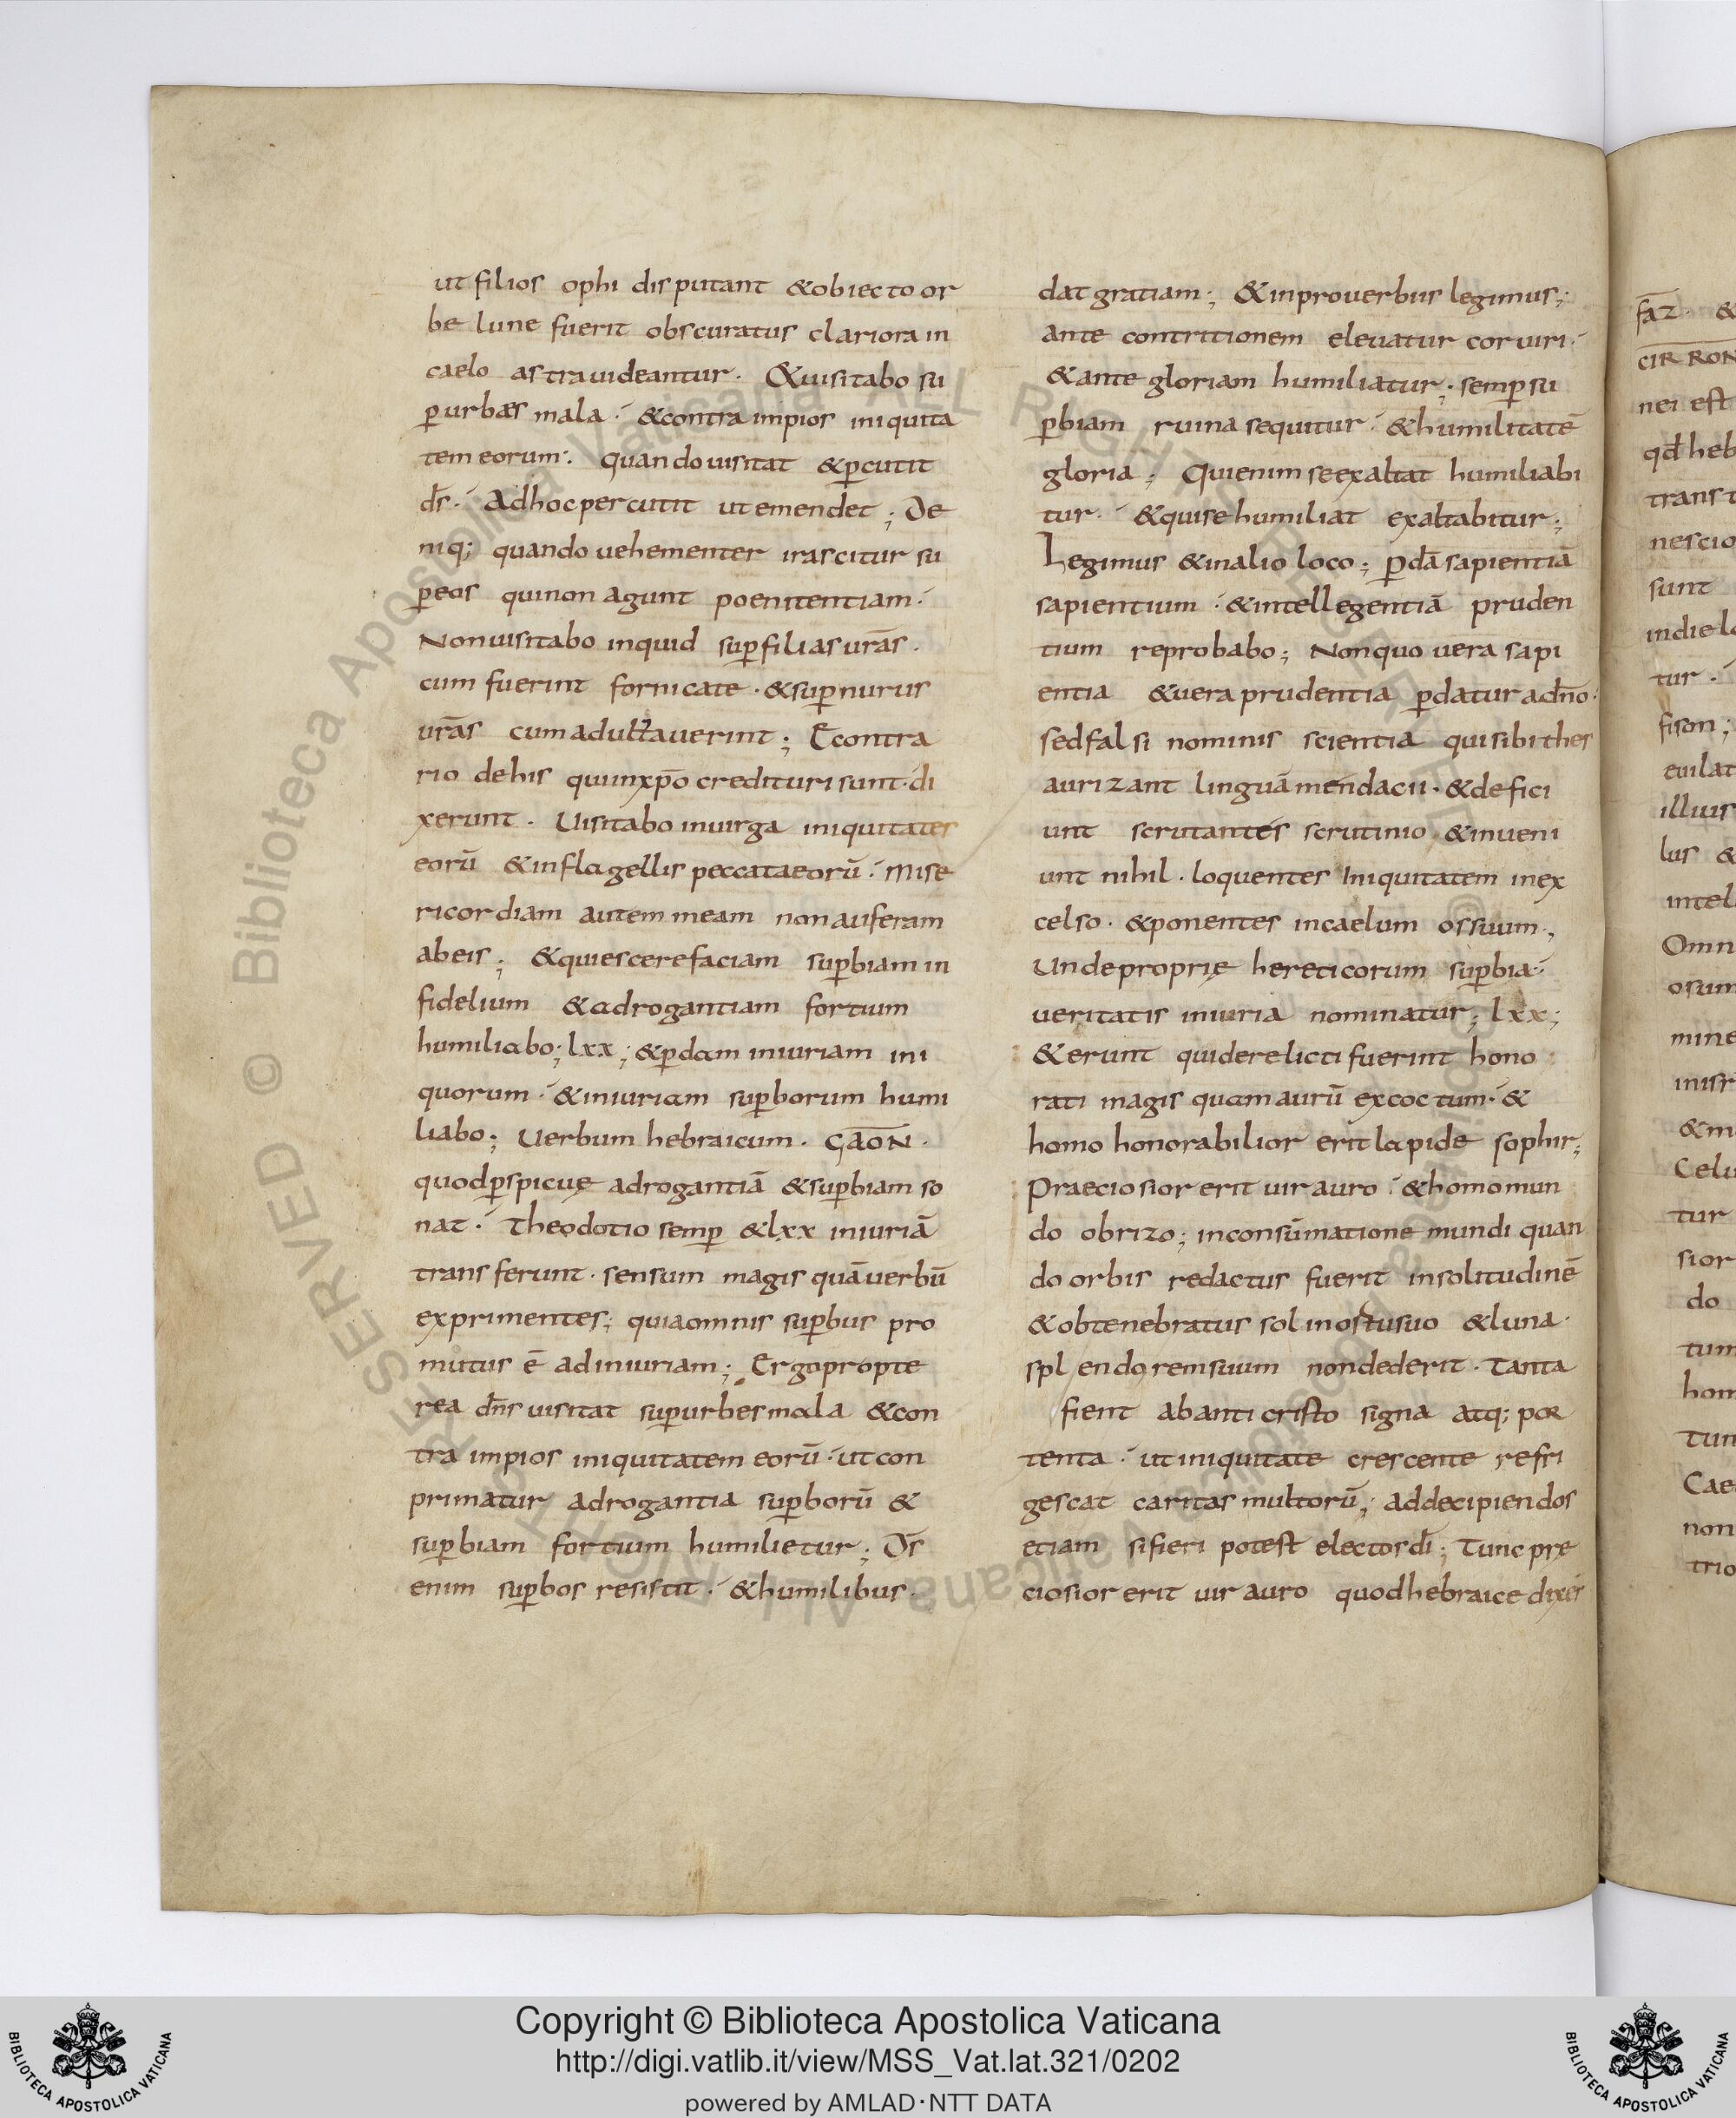 ut filios ophi disputant &obiecto or
be lune fuerit obscuratus clariora in
caelo astra uideantur. &uisitabo su
p̄ urbæs mala. &contra impios iniquita
tem eorum. quando uisitat &p̄cutit
d̄s. Adhoc percutit ut emendet; De
niq; quando uehementer irascitur su
p̄ eos qui non agunt poenitentiam.
Non uisitabo inquid sup̄ filias ur̄as.
cum fuerint fornicate. &sup̄ nurus
ur̄as cum adult̄auerint; Econtra
rio de his qui in xp̄o credituri sunt. di
xerunt. Uisitabo in uirga iniquitates
eorū &in flagellis peccata eorū. mise
ricordiam autem meam non auferam
ab eis; &quiescere faciam sup̄biam in
fidelium &adrogantiam fortium
humiliabo; lxx; &p̄dam iniuriam ini
quorum. &iniuriam sup̄borum humi
liabo; Uerbum hebraicum. GAON.
quod p̄spicuę adrogantiā &sup̄biam so
nat. Theodotio semp̄ &lxx iniuriā
transferunt. sensum magis quā uerbū
exprimentes; quia omnis sup̄bus pro
mutus ē ad iniuriam; Ergo propte
rea dn̄s uisitat sup̄ urbes mala &con
tra impios iniquitatem eorū. ut con
primatur adrogantia sup̄borū &
sup̄biam fortium humilietur; D̄s
enim sup̄bos resistit. &humilibus.
dat gratiam; &in prouerbiis legimus;
ante contritionem eleuatur cor uiri.
&ante gloriam humiliatur; semp̄ su
p̄biam ruina sequitur. &humilitatē
gloria; Qui enim se exaltat humiliabi
tur. &qui se humiliat exaltabitur;
Legimus &in alio loco; p̄dā sapientiā
sapientium. &intellegentiā pruden
tium reprobabo; Non quo uera sapi
entia &uera prudentia p̄datur a dn̄o.
sed falsi nominis scientia qui sibi thes
aurizant linguā mendacii. &defici
unt scrutantes scrutinio &inueni
unt nihil. loquentes Iniquitatem in ex
celso. &ponentes in caelum os suum.
Unde proprię hereticorum sup̄bia.
ueritatis iniuria nominatur; lxx;
&erunt qui derelicti fuerint hono
rati magis quam aurū excoctum. &
homo honorabilior erit lapide sophir;
Praeciosior erit uir auro. &homo mun
do obrizo; in consūmatione mundi quan
do orbis redactus fuerit in solitudinē
&obtenebratus sol in ostu suo &luna.
splendorem suum non dederit. Tanta
fient ab anti cristo signa atq; por
tenta. ut iniquitate crescente refri
gescat caritas multorū; ad decipiendos
etiam si fieri potest electos d̄i; Tunc prę
ciosior erit uir auro quod hebraice
Copyright © Biblioteca Apostolica Vaticana
http://digi.vatlib.it/view/MSS_Vat.lat.321/0202
powered by AMLAD·NTT DATA
BIBLIOTECA APOSTOLICA VATICANA
BIBLIOTECA APOSTOLICA VATICANA